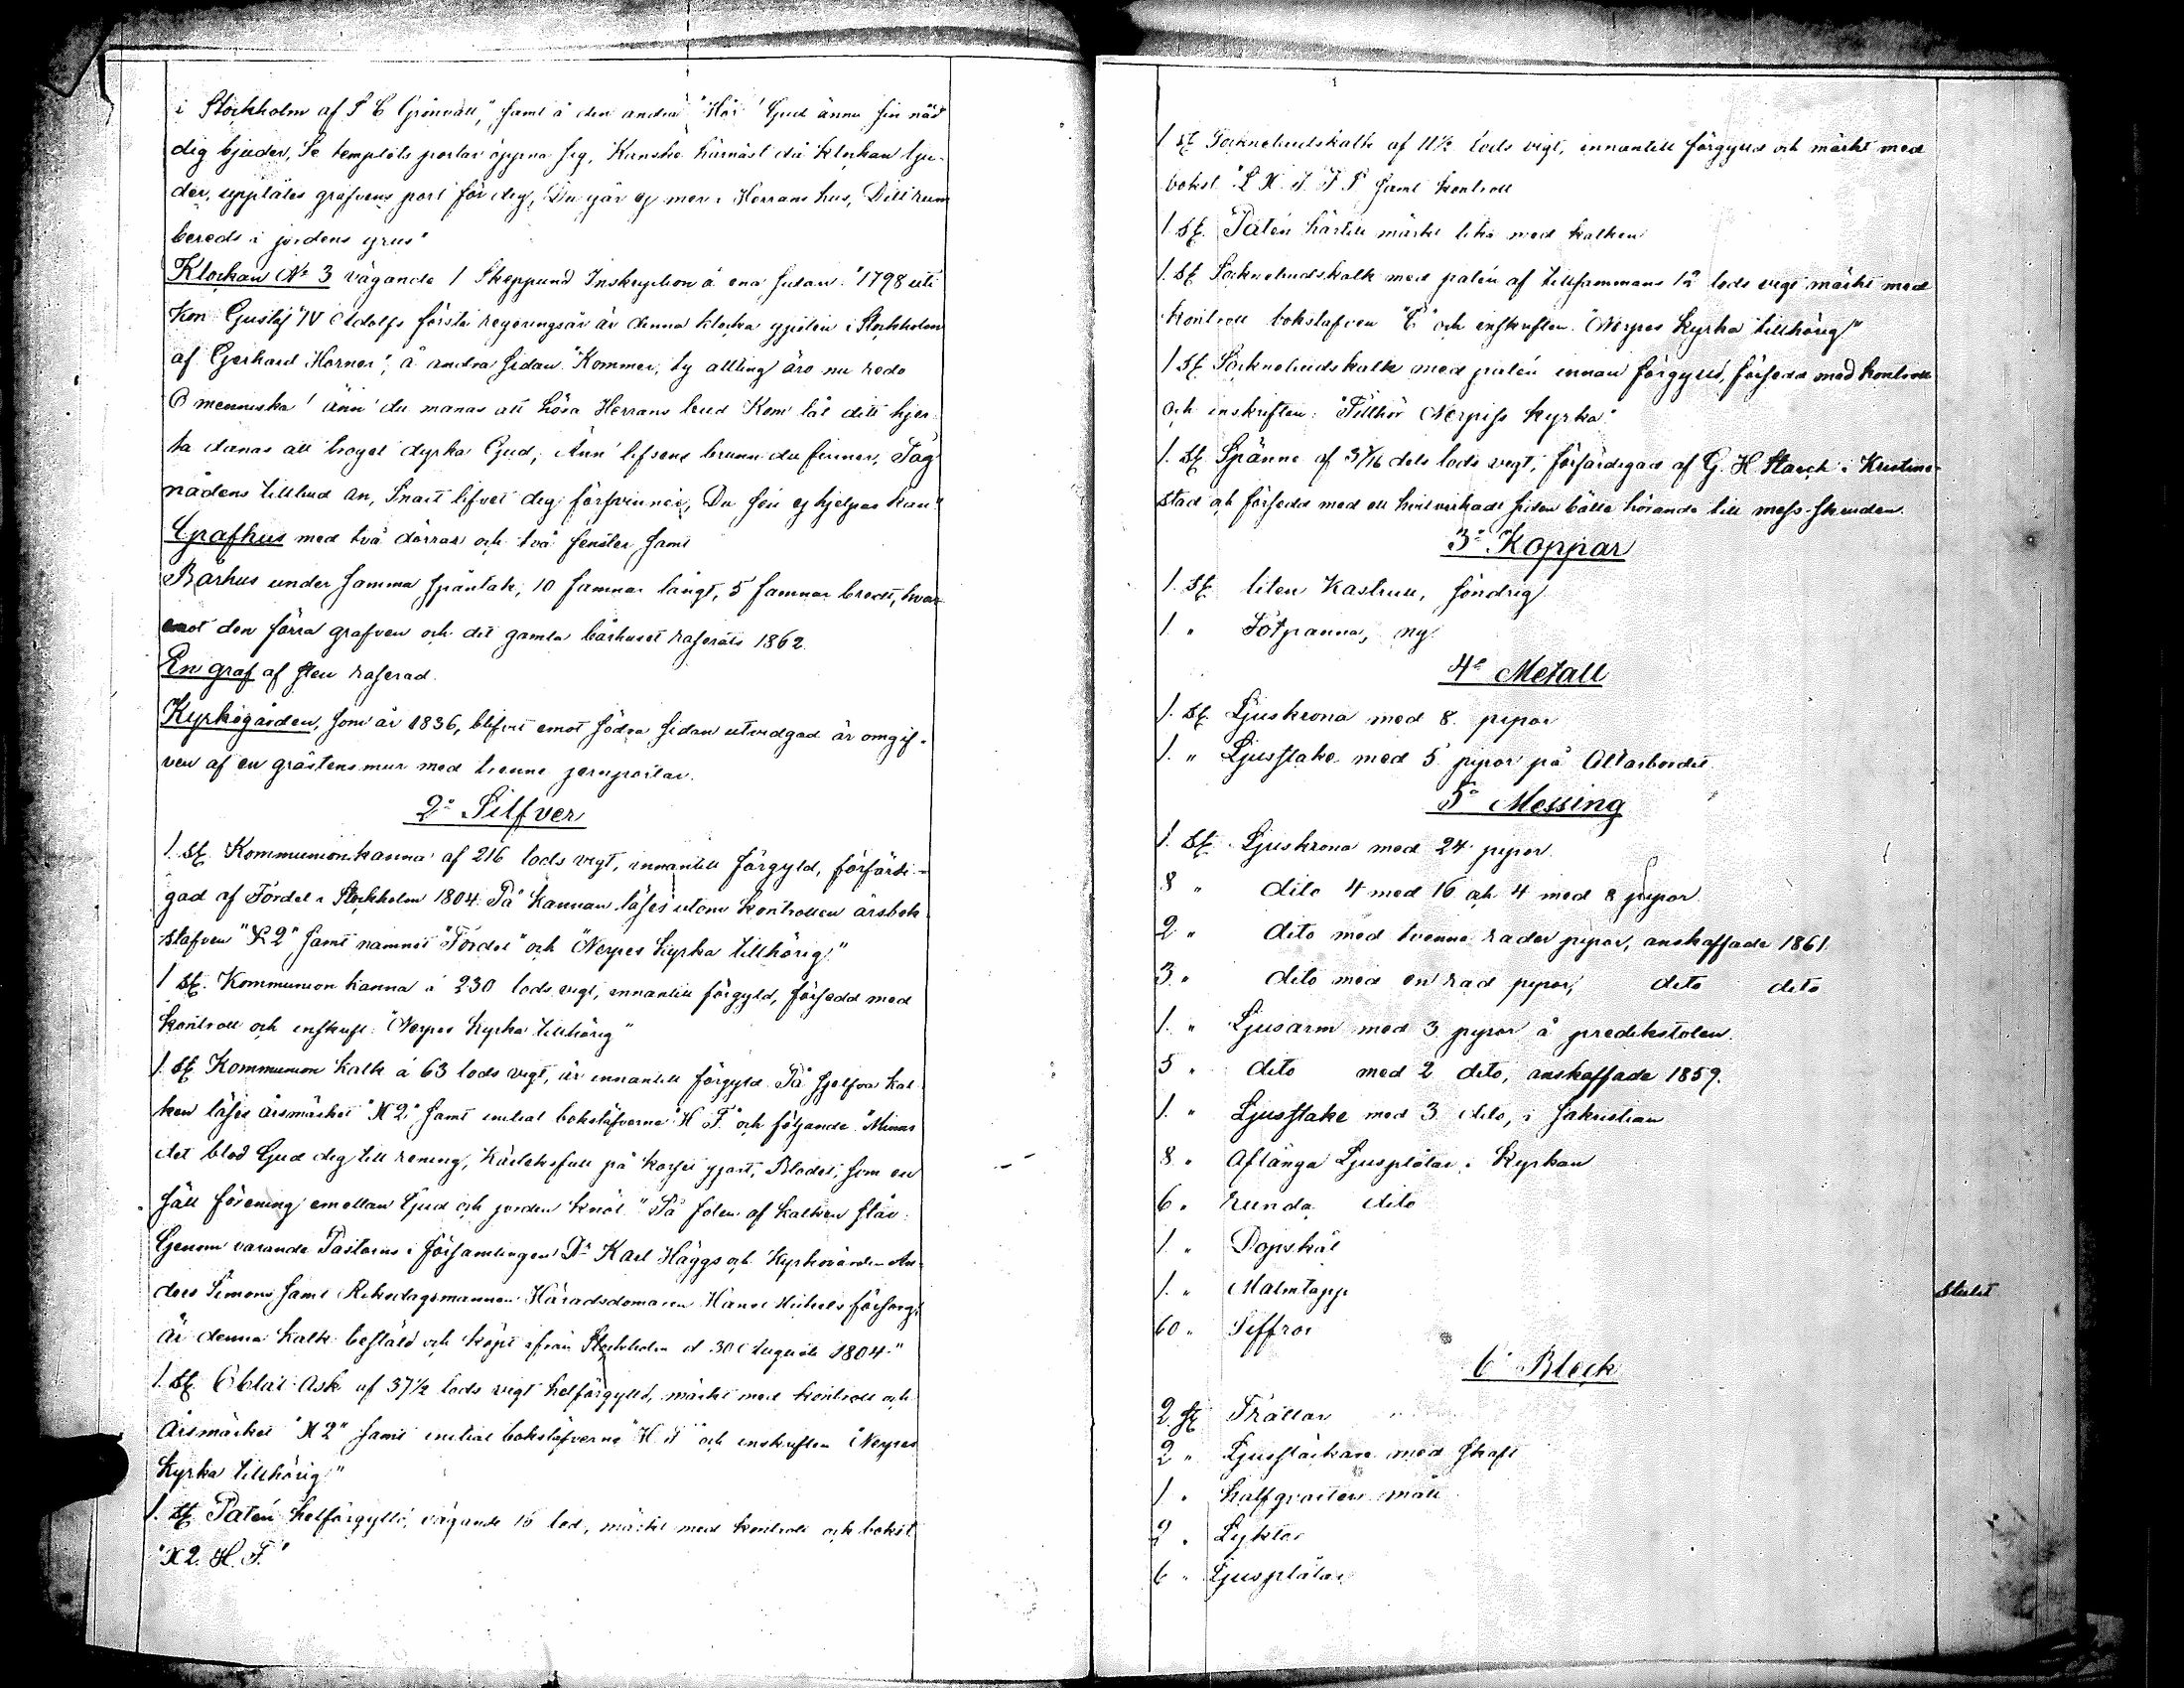 i Stockholm af P C Grönvall," samt å den andra "Hör! Gud ännu sin nåd
dig bjuder, Se templets portar öppna sig, Kanske härnäst då klockan lju-
der, upplåtes grafvens port för dig, Du går ej mer i Herrans hus, Ditt rum
bereds i jordens grus"
Klockan No 3 vägande 1 Skeppund Inskription å ena sidan: "1798 uti
Kon Gustaf IV Adolfs första regeringsår är denna klocka gjuten i Stockholm
af Gerhard Horner", å andra sidan "Kommer, ty allting äro nu redo
O menniska! änn' du manas att höra Herrans bud Kom låt ditt hjer-
ta danas att troget dyrka Gud; Änn' lifsens brunn du finner, Tag
nådens tillbud an, Snart lifvet dig försvinner, Du sen ej hjelpas kan"
Grafhus med två dörrar och två fenster samt
Bårhus under samma spåntak, 10 famnar långt, 5 famnar bredt, hvar-
emot den förra grafven och det gamla bårhuset raserats 1862.
En graf af sten raserad.
Kyrkogården, som år 1836, blifvit emot södra sidan utvidgad är omgif-
ven af en gråstensmur med trenne jernportar.
2o Silfver
1. St. Kommunionkanna af 216 lods vigt, innantill förgyld, förfärdi-
gad af Tördel i Stockholm 1804. På kannan läses utom kontrollen årsbok-
stafven "X2" samt namnet "Tördel" och "Nerpes Kyrka tillhörig"
1 St. Kommunion kanna á 230 lods vigt, innantill förgyld, försedd med
kontroll och inskrift: "Nerpes Kyrka tillhörig"
1. St Kommunion Kalk á 63 lods vigt, är innantill förgyld På sjelfva kal-
ken läses årsmärket "X2" samt initial bokstäfverna "H T" och följande "Minns
det blod Gud dig till rening, kärleksfull på korset gjort, Blodet, som en
säll förening emellan Gud och jorden knöt" På foten af kalken står:
Genom varande Pastorns i församlingen Dr Karl Häggs och Kyrkovärden An-
ders Simons samt Riksdagsmannen Häradsdomaren Hans Michels försorg,
är denna Kalk bestäld och köpt ifrån Stockholm d 30 Augusti 1804."
1. St. Oblat-Ask af 37½ lods vigt helförgylld, märkt med kontroll och
Årsmärket "X2" samt initial bokstäfverna "H T" och inskriften "Nerpes
Kyrka tillhörig"
1. St. Patén helförgylld, vägande 16 lod, märkt med kontroll och bokst
"X2. H. T."
1 St Socknebudskalk af 11½ lods vigt, innantill förgylld och märkt med
bokst "L H. I. T P samt kontroll
1 St. Patén härtill märkt lika med kalken
1. St Socknebudskalk med patén af tillsammans 12 lods vigt märkt med
kontroll bokstafven "C" och inskriften "Nerpes Kyrka tillhörig"
1 St Socknebudskalk med patén innan förgylld, försedd med kontroll
och inskriften: "Tillhör Nerpiss kyrka"
1. St. Spänne af 3 7/16 dels lods vigt, förfärdigad af G. H Starck i Kristine-
stad och försedd med ett hvitvirkadt siden bälte hörande till mess-skruden.
3o Koppar
1. St liten Kastrull, söndrig
1. " Fotpanna, ny
4o Metall
1. St. Ljuskrona med 8. pipor
1. " Ljusstake med 5 pipor på Altarbordet.
5o Messing
1. St. Ljuskrona med 24 pipor.
8 " dito 4 med 16 och 4 med 8 pipor.
2 " dito med tvenne rader pipor, anskaffade 1861.
3 " dito med en rad pipor, dito dito
1. " Ljusarm med 3 pipor å predikstolen.
5 " dito med 2 dito, anskaffade 1859.
1. " Ljusstake med 3 dito, i sakristian
8 " Aflånga Ljusplåtar i Kyrkan
6 " runda dito
1. " Dopskål
1. " Malmtapp Stulit
60 " Siffror
6o Bleck
2. St Trattar
2 " Ljussläckare med skaft
1 " halfqvarters mått
2 " Lyktor
6 " Ljusplåtar